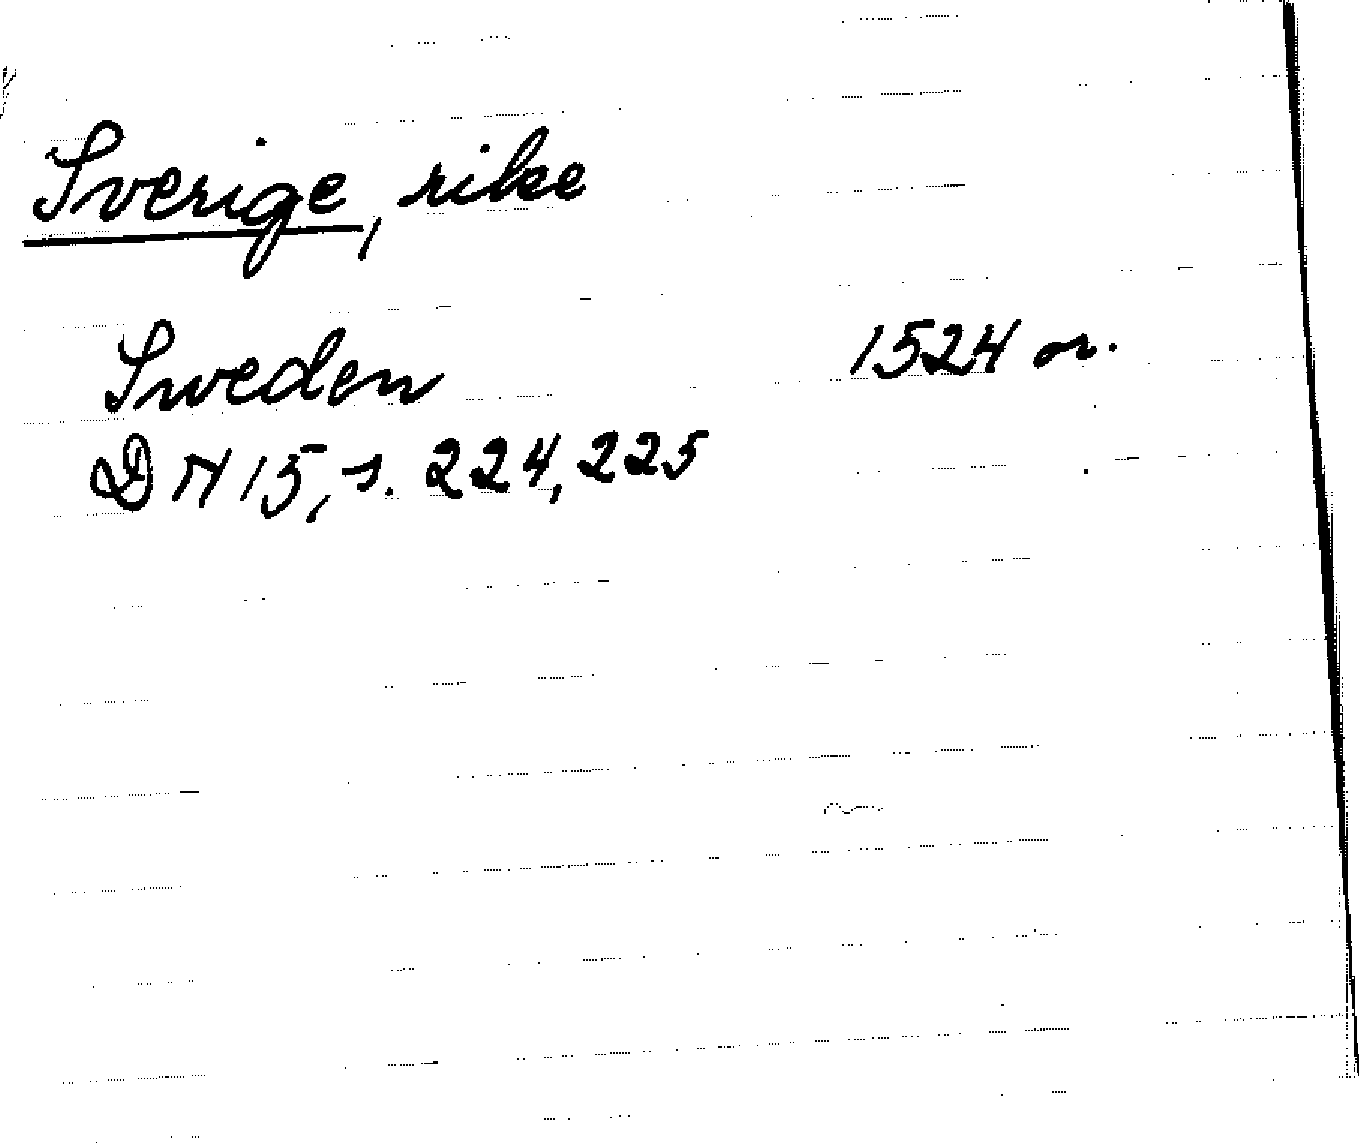 Sverige, rike
Sweden 1524 or.
DN 15, s. 224, 225